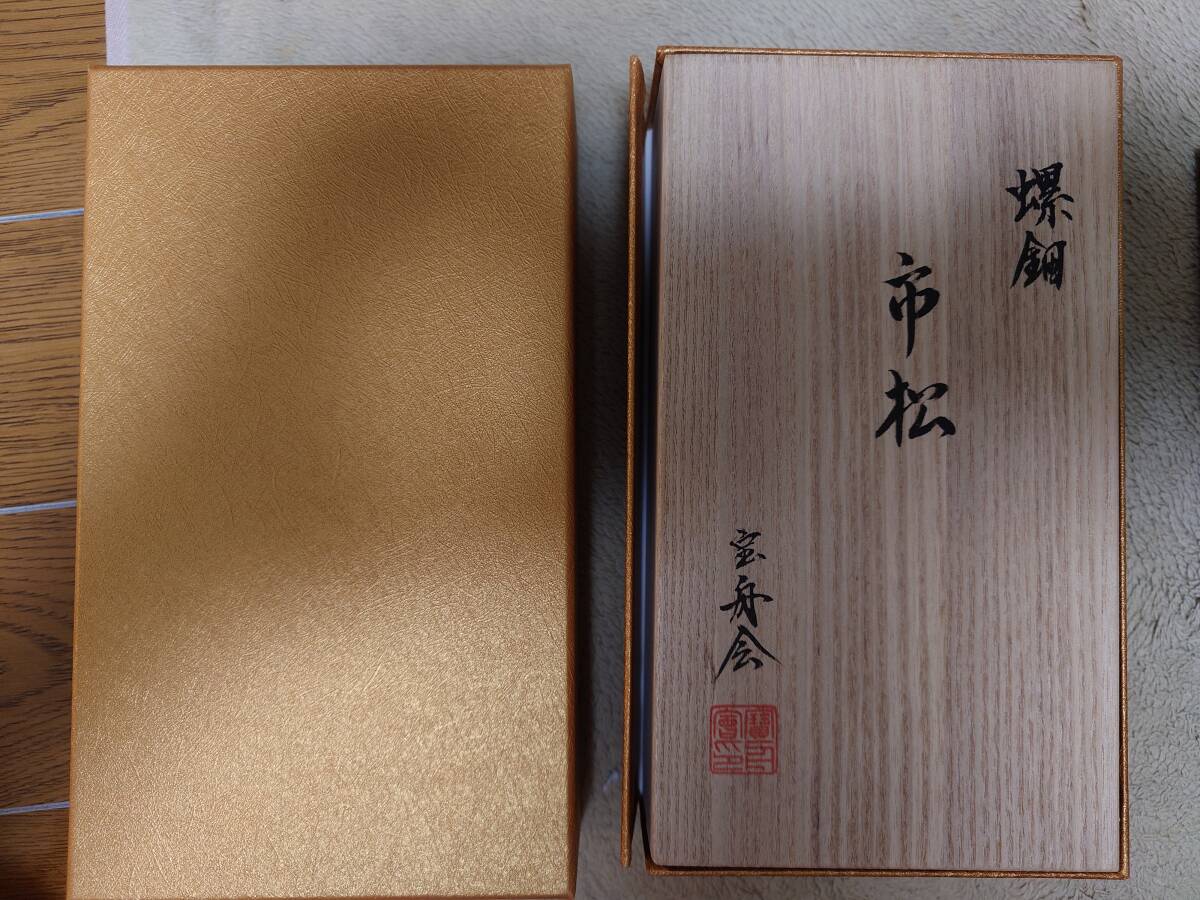 螺鈿
市松
宝舟会